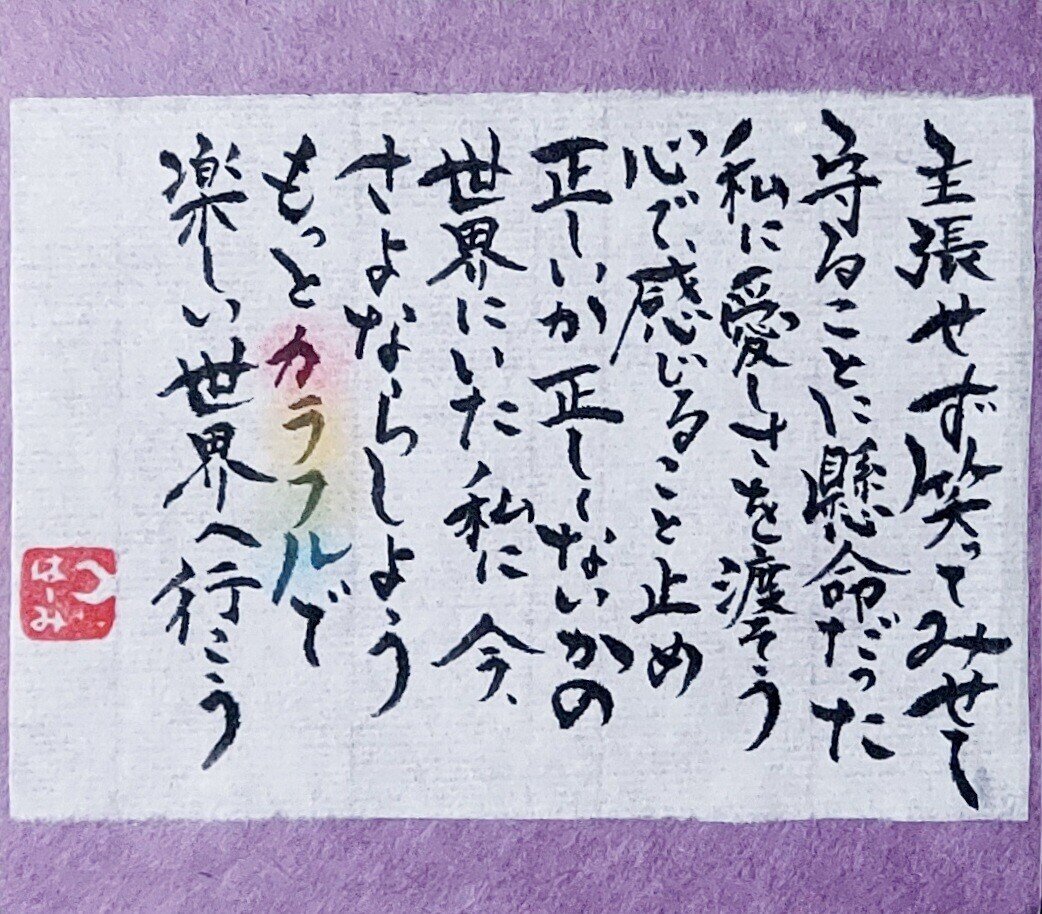 主張せず笑ってみせて
守ることに懸命だった
私に愛しさを渡そう
心で、感じること止め
正しいか正しくないかの
世界にいた私に今、
さよならしよう
もっとカラフルで
楽しい世界へ行こう